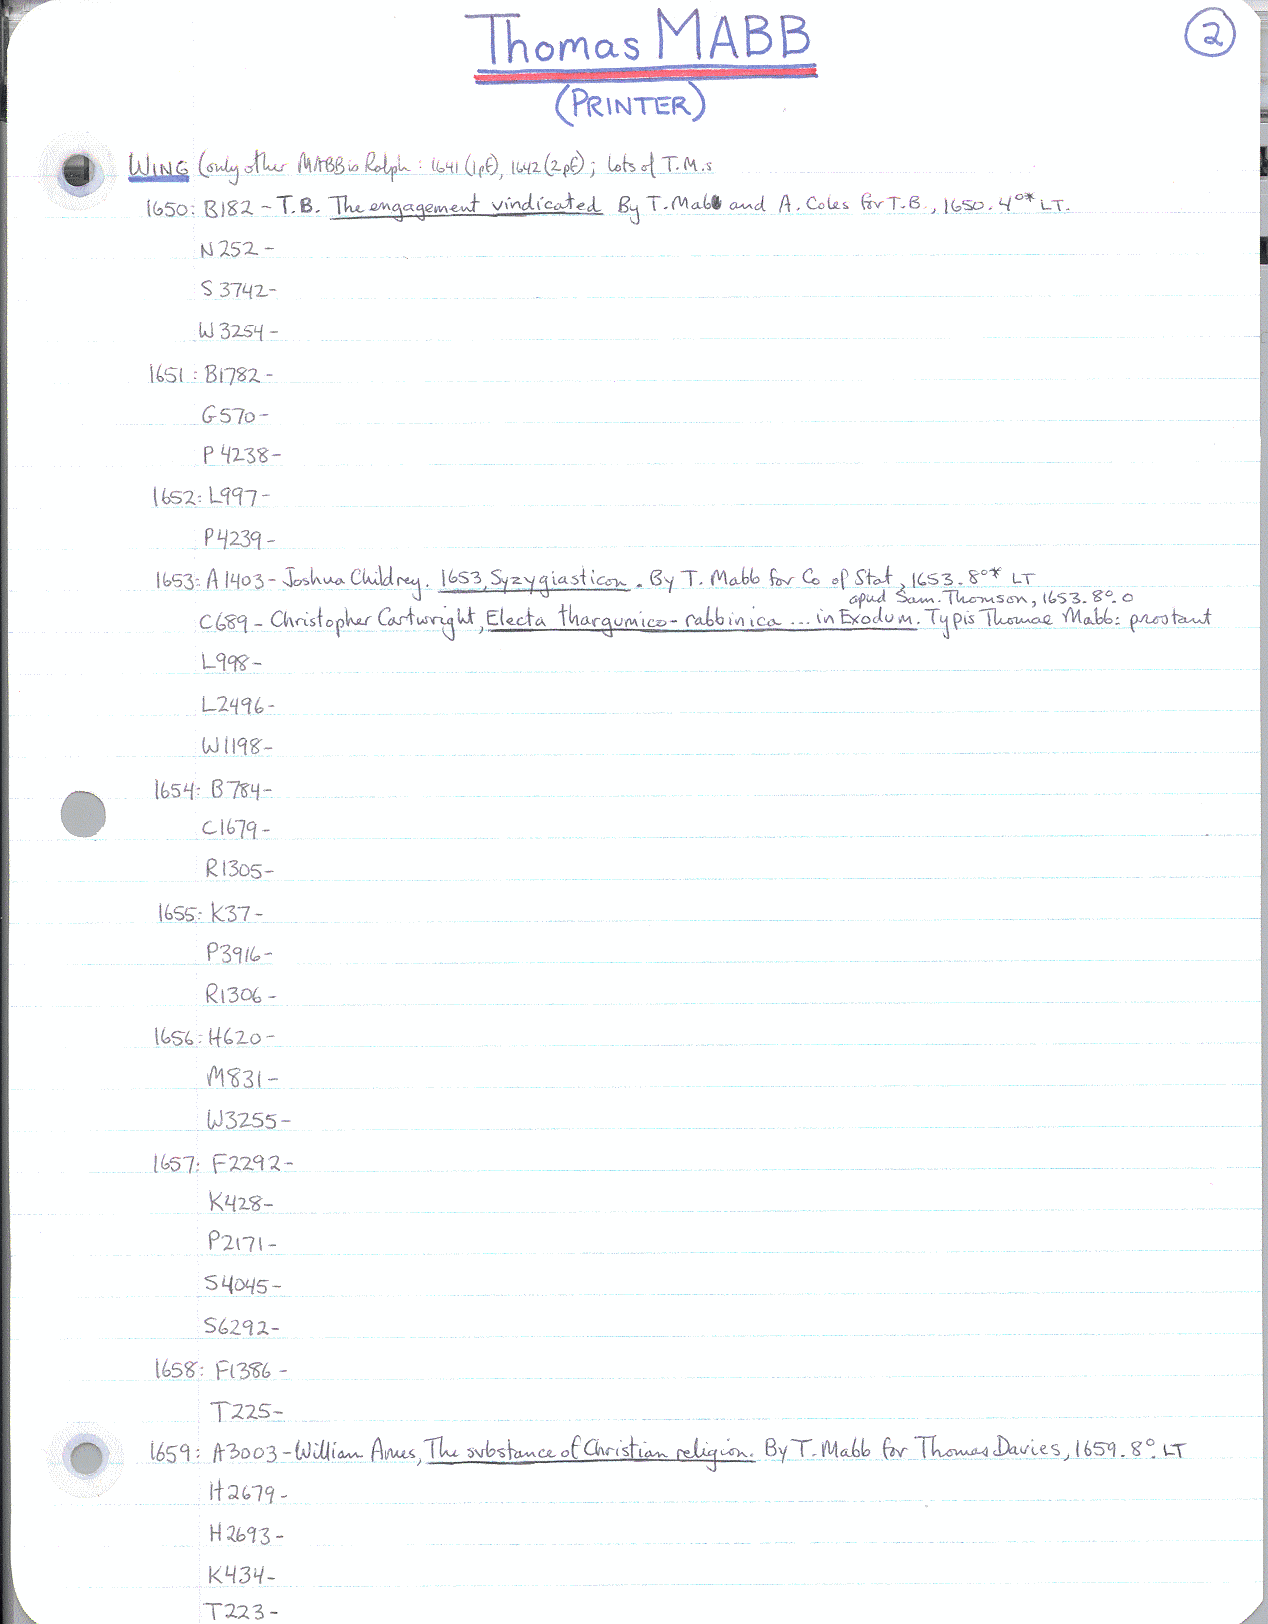 Thomas MABB
2
(PRINTER)
WING (only other MABB is Ralph: 1641 (1pE), 1642 (2pE); lots of T.M.s
1650: B182 - T.B. The engagement vindicated By T. Mabb and A. Coles for T.B., 1650. 4º* LT.
N252-
S3742-
W3254-
1651: B1782-
G570-
P4238-
1652: L997-
P4239-
1653: A1403- Joshua Childrey. 1653, Syzygiasticon. By T. Mabb for Co of Stat, 1653. 8º* LT
apud Sam. Thomson, 1653. 8º. O
C689- Christopher Cartwright, Electa thargumico-rabbinica ... in Exodum. Typis Thomae Mabb: prostant
L998-
L2496-
W1198-
1654: B784-
C1679-
R1305-
1655: K37-
P3916-
R1306-
1656: H620-
M831-
W3255-
1657: F2292-
K428-
P2171-
S4045-
S6292-
1658: F1386-
T225-
1659: A3003- William Ames, The substance of Christian religion. By T. Mabb for Thomas Davies, 1659. 8º. LT
H2679-
H2693-
K434-
T223-